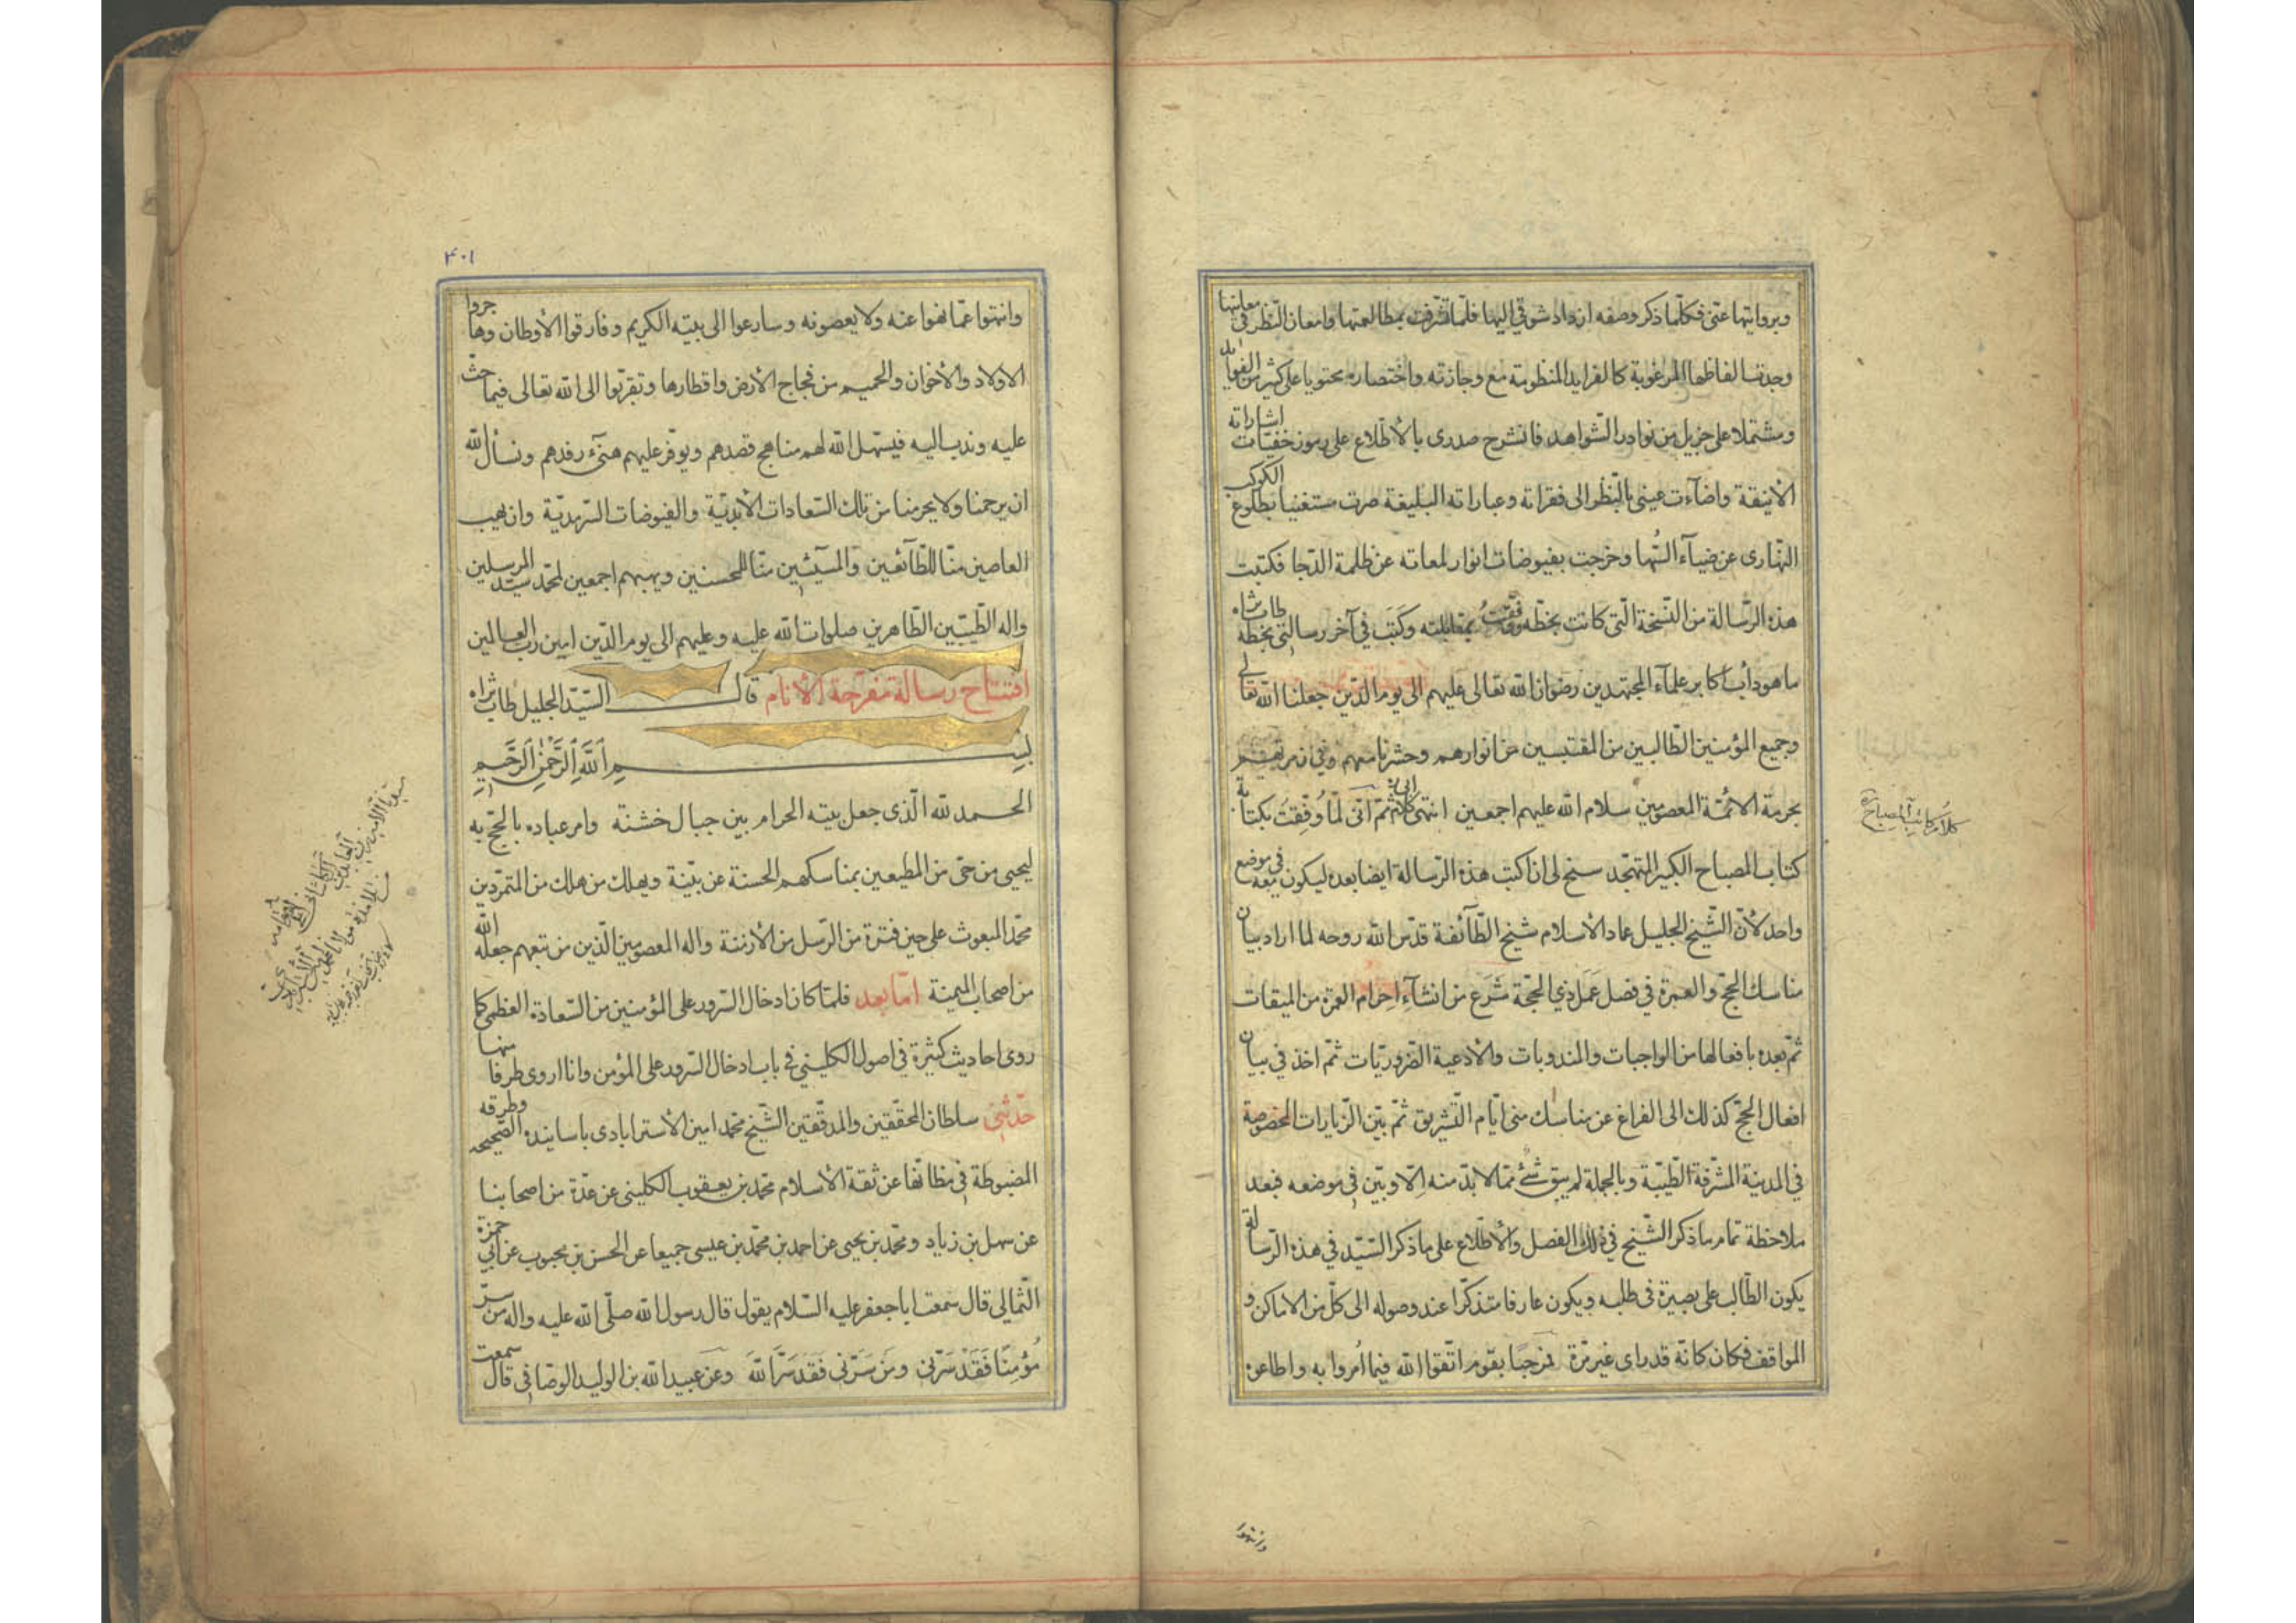 وبروايتها عنّي فكلّما ذكر وصفه ازداد شوقي اليها فلمّا تشرّفت بمطالعتها وامعان النّظر في معانيها
وجدت الفاظها المرغوبة كالفرايد المنظومة مع وجازته واختصاره محتويا على كثير من الفوايد
ومشتملا على جزيل من نوادر الشّواهد فانشرح صدري بالأطّلاع على رموز خفيّات اشاراته
الأنيقة واضآءت عيني بالنّظر الى فقراته وعباراته البليغة صرت مستغنيا بطلوع الكوكب
النّهاري عن ضيآء السُّها وخرجت بفيوضات انوار لمعاته عن ظلمة الدّجا فكتبت
هذه الرّسالة من النّسخة الّتي كانت بخطّه ووفّقتُ بمقابلته وكَتَبَ في آخر رسالتي بخطّه طاب ثراه
ما هو دأب اكابر علمآء المجتهدين رضوان الله تعالى عليهم الى يوم الدّين جعلنا الله تعالى
وجميع المؤمنين الطّالبين من المقتبسين من انوارهم وحشرنا معهم وفي زمرتهم
بحرمة الائمّة المعصومين سلام الله عليهم اجمعين انتهى كلامه ثمّ انّى لمّا وُفّقتَ بكتابة
كتاب المصباح الكبير المتهجّد سنح لي ان اكتب هذه الرّسالة ايضا بعده ليكون معه في موضع
واحد لأنّ الشّيخ الجليل عماد الأسلام شيخ الطّآئفة قدّس الله روحه لما اراد بيان
مناسك الحجّ والعمرة في فصل عَمَل ذي الحجّة شَرَع من انشآءِ احرام العمرة من الميقات
ثمّ بعده بافعالها من الواجبات والمندوبات والأدعية الضّروريّات ثمّ اخذ في بيان
افعال الحجّ كذلك الى الفراغ عن مناسك منى ايّام التّشريق ثمّ بيّن الزّيارات المخصوصة
في المدينة المشرّفة الطّيّبة وبالجملة لم يبق شئ ممّا لا بدّ منه الّا وبيّن في موضعه فبعد
ملاحظة تمام ما ذكر الشّيخ في ذلك الفصل والأطّلاع على ما ذكر السّيّد في هذه الرّسالة
يكون الطّالب على بصيرة في طلبه ويكون عارفا متذكّرا عند وصوله الى كلّ من الاماكن و
المواقف فكان كانّه قد رأى غير مرّة فمرحبًا بقوم اتّقوا الله فيما اُمروا به واطاعوه
كلام كاتب المصباح
وانتهوا
۴۰۱
وانتهوا عمّا نهوا عنه ولا يعصونه وسارعوا الى بيته الكريم وفارقوا الأوطان وهاجروا
الاولاد والأخوان والحميم من فجاج الأرض واقطارها وتقرّبوا الى الله تعالى فيما حثّ
عليه وندب اليه فيسهّل الله لهم مناهج قصدهم ويوفّر عليهم هنئ رفدهم ونسأل الله
ان يرحمنا ولا يحرمنا من تلك السّعادات الأبديّة والفيوضات السّرمديّة وان يهب
العاصين منّا للطّآئعين والمسيئين منّا للمحسنين ويهبهم اجمعين لمحمّد سيّد المرسلين
واله الطّيّبين الطّاهرين صلوات الله عليه وعليهم الى يوم الدّين امين ربّ العالمين
افتتاح رسالة مفرّحة الأنام قال السّيّد الجليل طاب ثراه
بسم الله الرّحمن الرّحيم
الحمد لله الّذي جعل بيته الحرام بين جبال خشنة وامر عباده بالحجّ به
ليحيى من حىّ من المطيعين بمناسكهم الحسنة عن بيّنة ويهلك من هلك من المتمرّدين
محمّد المبعوث على حين فترة من الرّسل من الأزمنة واله المعصومين الّذين من تبعهم جعله الله
من اصحاب الميمنة امّا بعد فلمّا كان ادخال السّرور على المؤمنين من السّعادة العظمى كما
روى احاديث كثيرة في اصول الكليني في باب ادخال السّرور على المؤمن وانا اروى طرفا منها
حدّثني سلطان المحقّقين والمدقّقين الشّيخ محمّد امين الأسترابادي باسانيده الصّحيحه وطرقه
المضبوطة في مظانّها عن ثقة الأسلام محمّد بن يعقوب الكليني عن عدّة من اصحابنا
عن سهل بن زياد ومحمّد بن يحيى عن احمد بن محمّد بن عيسى جميعا عن الحسن بن محبوب عن ابي حمزة
الثّمالي قال سمعت ابا جعفر عليه السّلام يقول قال رسول الله صلّى الله عليه واله من سرّ
مُؤمِنًا فَقَدْ سَرّني ومَن سَرّني فَقَد سَرَّ اللهَ وعن عبيد الله بن الوليد الوصّافي قال سمعت